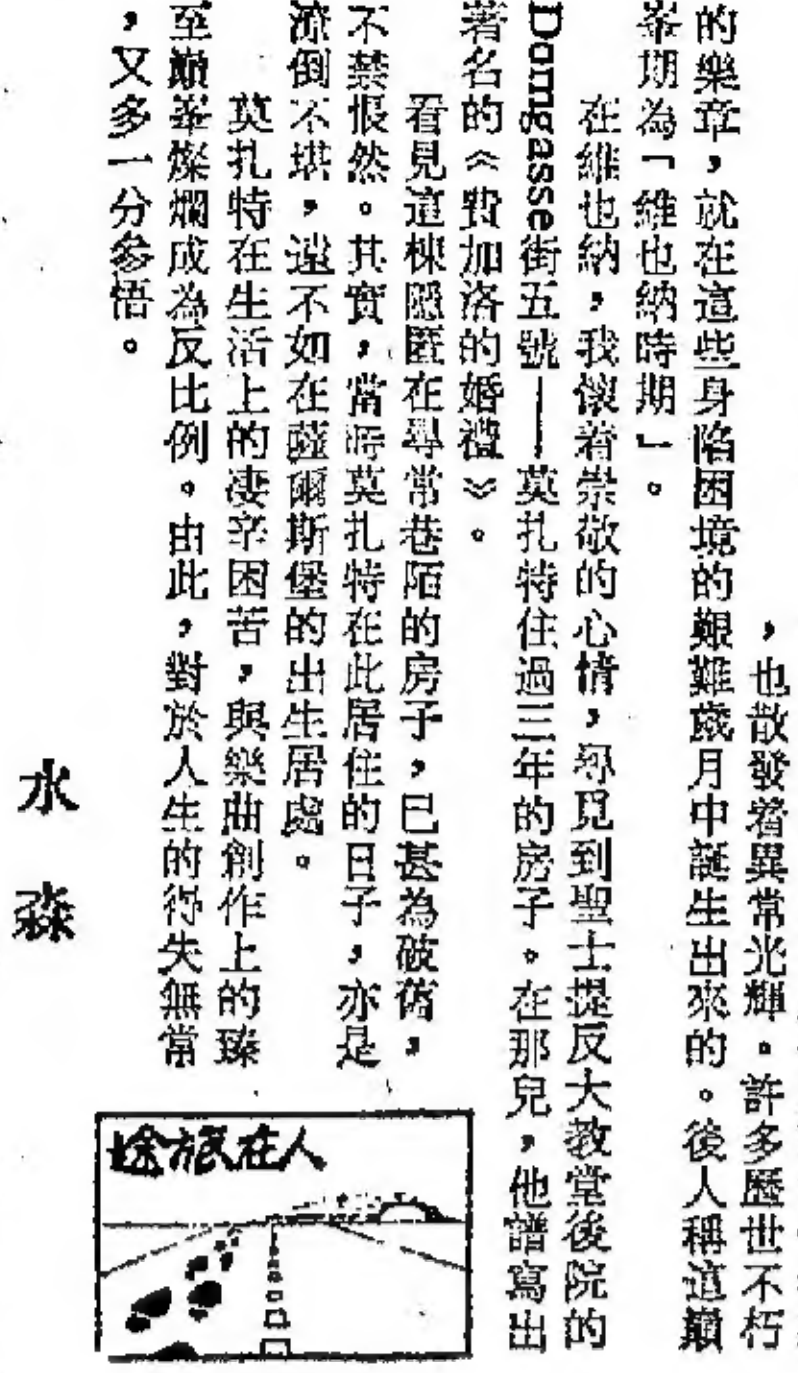 ，也散發着異常光輝。許多歷世不朽
的樂章，就在這些身陷困境的艱難歲月中誕生出來的。後人稱這巔
峯期為「維也納時期」。
在維也納，我懷着崇敬的心情，尋覓到聖士提反大教堂後院的
Domgasse街五號——莫扎特住過三年的房子。在那兒，他譜寫出
著名的《費加洛的婚禮》。
看見這棟隱匿在尋常巷陌的房子，已甚為破舊，
不禁悵然。其實，當時莫扎特在此居住的日子，亦是
潦倒不堪，遠不如在薩爾斯堡的出生居處。
莫扎特在生活上的凄辛困苦，與樂曲創作上的臻
至巔峯燦爛成為反比例。由此，對於人生的得失無常
，又多一分參悟。
水淼
人在旅途